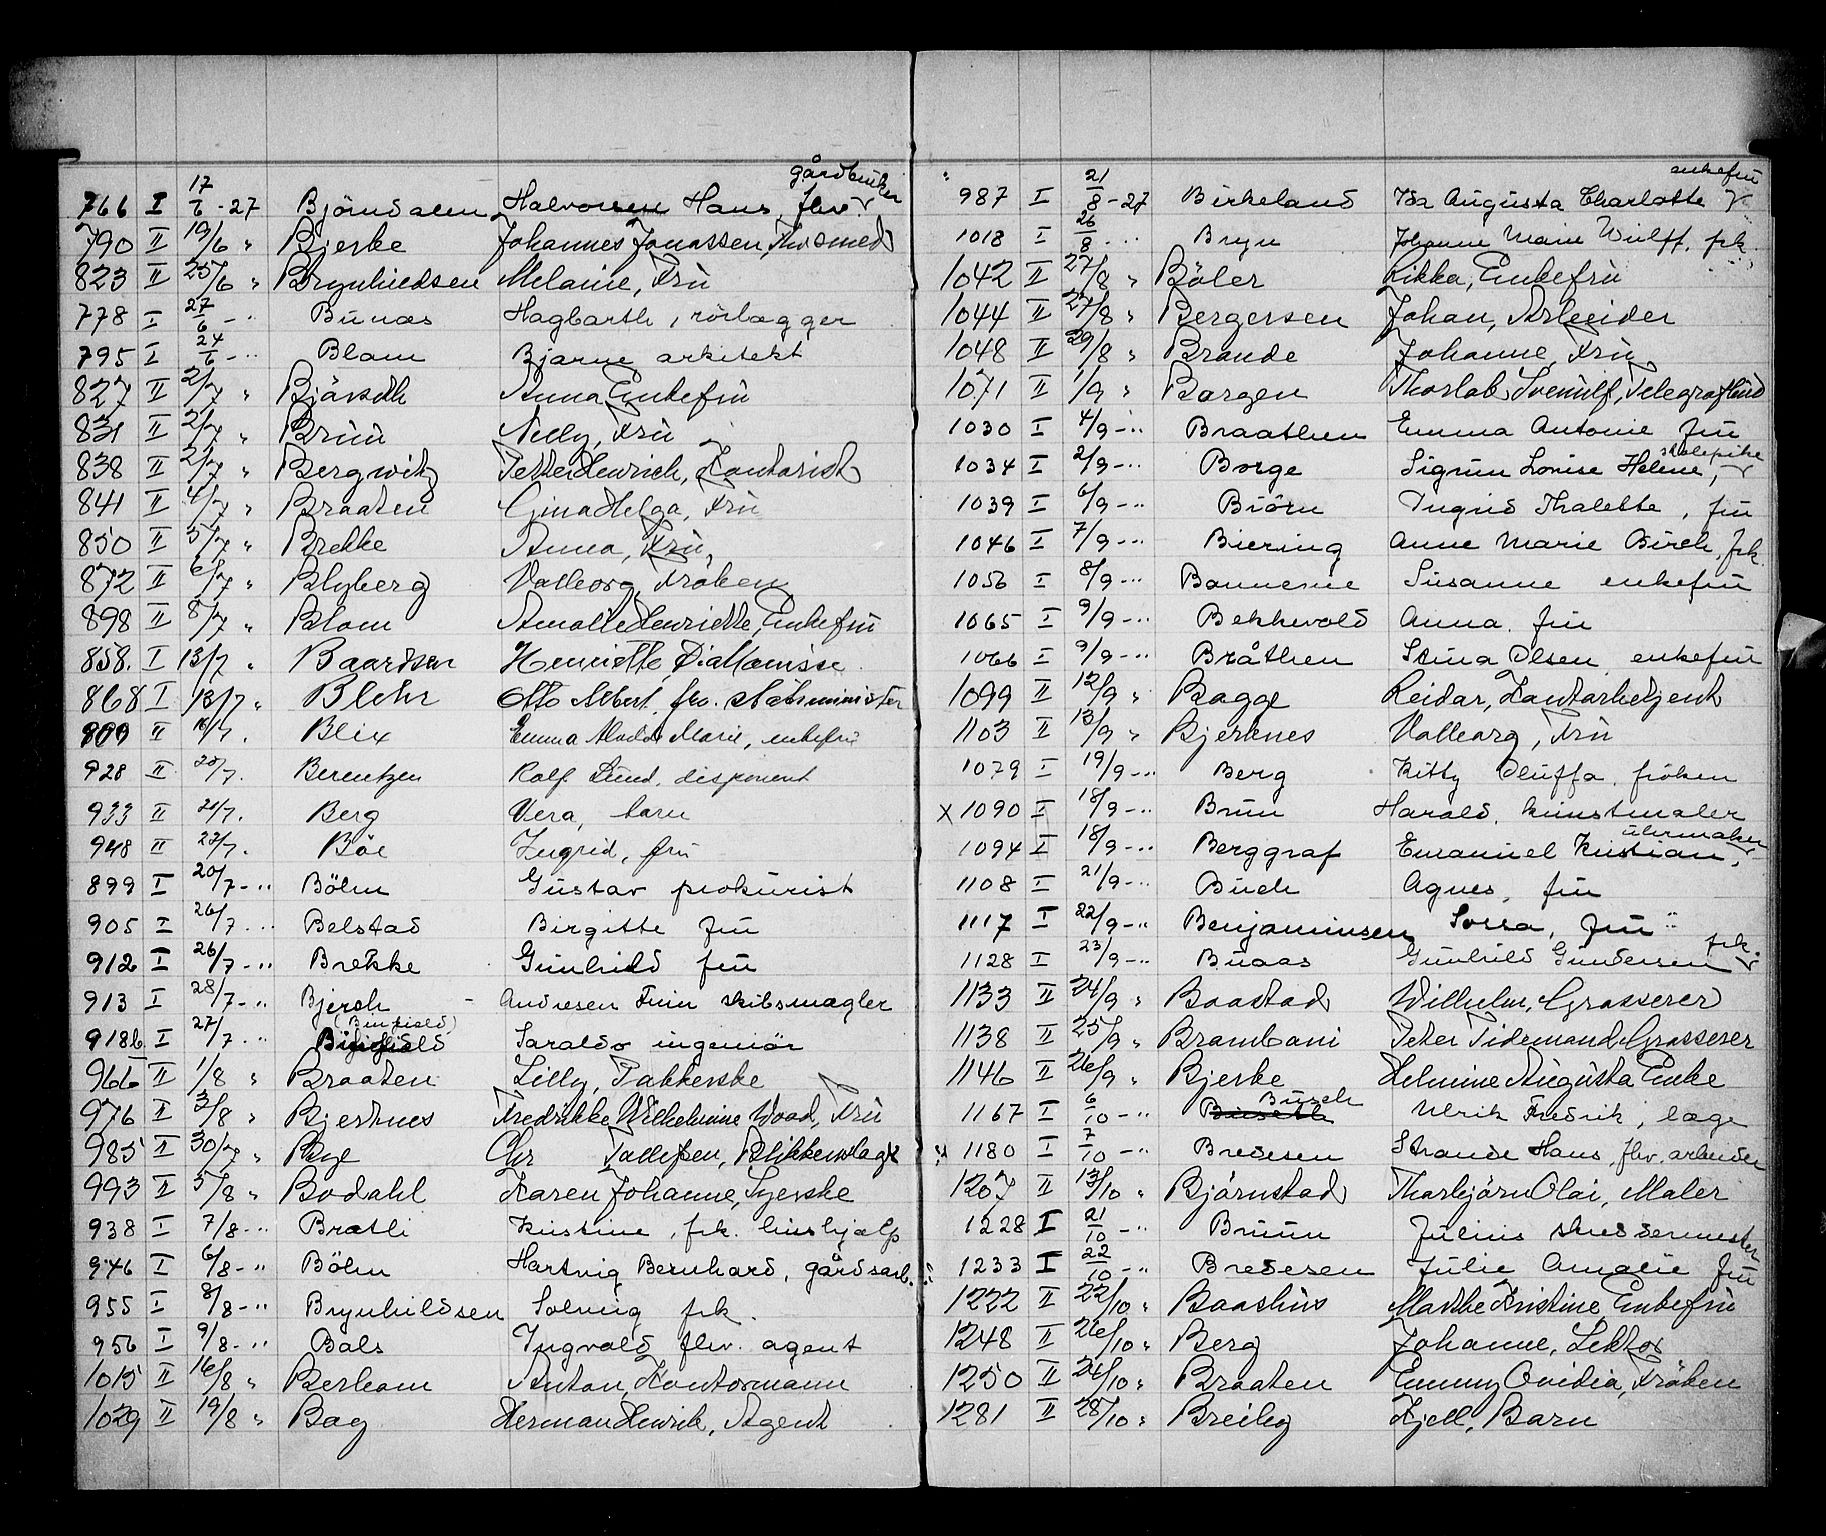 766 I 17/6 - 27 Björndalen Halvorsen Hans, fhv. gårdbruker
790 II 19/6 " Bjerke Johannes Jonassen,
823 II 25/6 " Brynhildsen Melanie, Fru
778 I 27/6 - " Bunæs Hagbarth, rörlægger
795 I 24/6 - " Blom Bjarne arkitekt
827 II 2/7 " Anna Enkefru
831 II 2/7 " Bruu Nelly, Fru
838 II 2/7 " Bergwitz Petter Henrich, Kontorist
841 II 4/7 " Braaten Gina Helga, Fru
850 II 5/7 " Brekke Anna, Fru
872 II 6/7 " Blyberg Valborg, Fröken
898 II 8/7 " Blom Amalie Henriette, Enkefru
858. I 13/7 " Baardsen Henriette, Diakonisse
868 I 13/7 " Blehr Otto Albert, fhv. Statsminister
909 II /7. Blix Emma Marie, enkefru
928 II 20/7. Berentzen Rolf Lund, disponent
933 II 21/7. Berg Vera, barn
948 II 23/7. Böe Ingrid, fru
899 I 20/7 - " Böhn Gustav prokurist
905 I 26/7 - " Belstad Birgitte fru
912 I 26/7 - " Brekke Gunhild fru
913 I 28/7 - " Bjerch - Andresen Finn skibsmægler
918b I 27/7 - " (Binfield) ingeniör
966 II 1/8 " Braaten Lilly, Pakkerske
976 II 3/8 " Bjerknes Fredrikke Wilhelmine Wood, Fru
985 II 30/7 " Bye Chr Tallefsen, Blikkenslager
993 II 5/8 " Bodahl Karen Johanne, Syerske
938 I 7/8 - " Bratli Kristine, frk. hushjælp
946 I 6/8 - " Böhn Hartvig Bernhard, gårdsarb.
955 I 8/8 - " Brynhildsen Solveig frk.
956 I 9/8 - " Bals Ingvald fhv. agent
1015 II 16/8 " Berkom Anton, Kontormann
1029 II 19/8 " Bay Herman Henrik, Agent
987 I 21/8 - 27 Birkeland Ida Augusta Charlotte enkefru
1018 I 26/8 - " Bryn Johanne Marie Wulff, frk.
1042 II 27/8 " Böler Rikka, Enkefru
1044 II 27/8 " Bergersen Johan, Arbeider
1048 II 29/8 " Brande Johanne, Fru
1071 II 1/9 " Borgen Thorlab Svenulf,
1030 I 4/9 - " Braathen Emma Antonie fru
1034 I 2/9 - " Borge Sigrun Lovise Helene, skolepike
1039 I 6/9 - " Björn Ingrid Thalette, fru
1046 I 7/9 - " Biering Anne Marie Birch, frk.
1056 I 8/9 - " Bonnevie Susanne enkefru
1065 I 9/9 - " Bekkevold Anna fru
1066 I 9/9 - " Bråthen Stina Olsen enkefru
1099 II 12/9 " Bagge Reidar, Kontorbetjent
1103 II 13/9 " Bjerknes Valborg, Fru
1079 I 19/9 - " Berg Kitty Oluffa fröken
x 1090 I 18/9 - " Brun Harald, kunstmaler
1094 I 18/9 - " Berggraf Emanuel Kristian, uhrmaker
1108 I 21/9 - " Buch Agnes, fru
1117 I 22/9 - " Benjaminsen Sossa, fru
1128 I 23/9 - " Buaas Gunhild Gundersen frk.
1133 II 24/9 " Baastad Wilhelm, Grosserer
1138 II 25/9 " Brambani Peter Tidemand, Grosserer
1146 II 26/9 " Bjerke Helmine Augusta Enke
1167 I 6/10 - " Busch Ulrik Fredrik, læge
1180 I 7/10 - " Bredesen Strande Hans, fhv. arbeider
1207 II 13/10 " Björnstad Thorbjörn Olai, Maler
1228 I 21/10 - " Bruun Julius skreddermester
1233 I 22/10 - " Bredesen Julie Amalie fru
1222 II 22/10 " Baashus Marthe Kristine Enkefru
1248 II 26/10 " Berg Johanne, Lektor
1250 II 26/10 " Braaten Emmy Ovidia, Fröken
1281 II 28/10 " Breiby Kjell, Barn